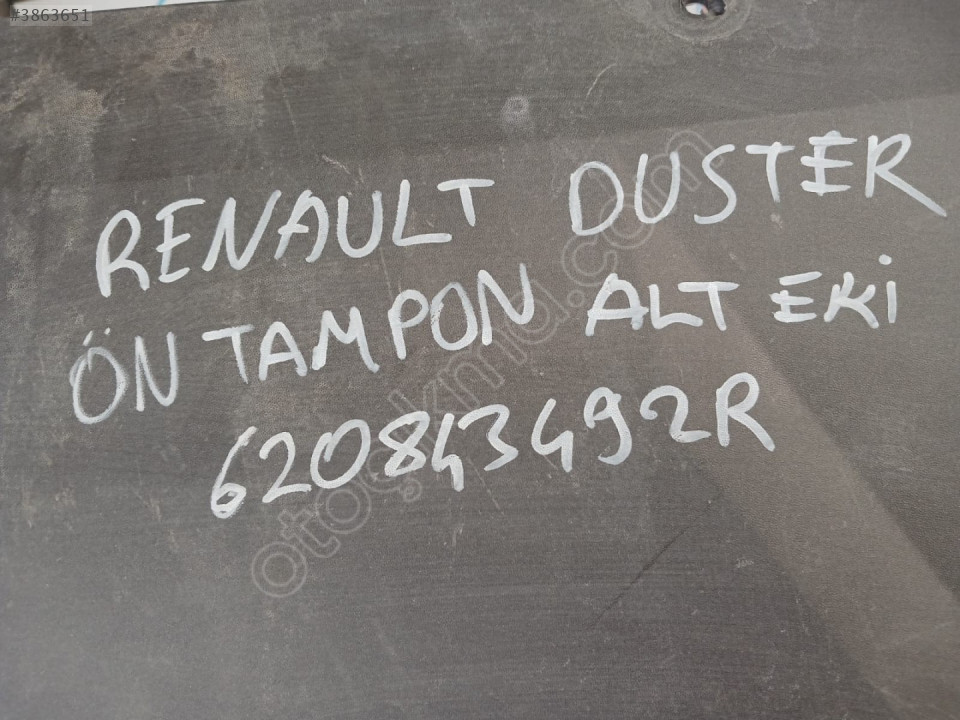 #3863651
RENAULT DUSTER
ÖN TAMPON ALT EKİ
620843492R
otoçıkma.com